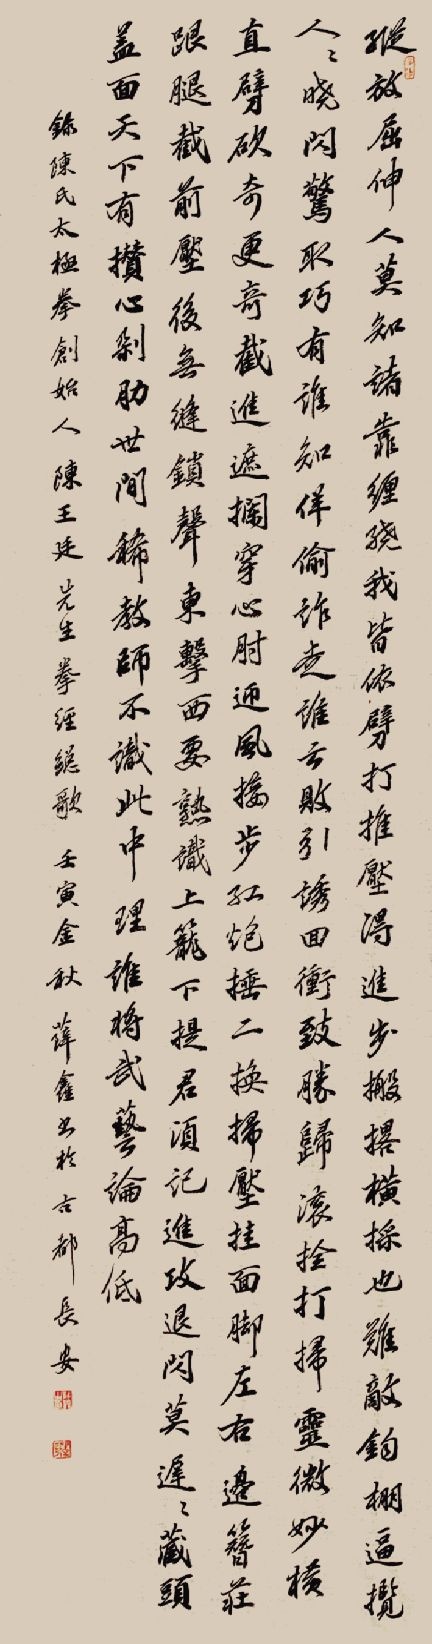 縱放屈伸人莫知諸靠纏繞我皆依劈打推壓得進步搬撂橫採也難敵鈎棚逼攬
人〻曉閃驚取巧有誰知佯偷詐走誰云敗引誘回衝致勝歸滾拴打掃靈微妙橫
直劈砍奇更奇截進遮攔穿心肘迎風接步紅炮捶二換掃壓挂面脚左右邊簪莊
跟腿截前壓後無縫鎖聲東擊西要熟識上籠下提君須記進攻退閃莫遲〻藏頭
盖面天下有攢心剁肋世間稀教師不識此中理誰將武藝論高低
錄陳氏太極拳創始人陳王廷先生拳經總歌 壬寅金秋 薛鑫書於古都長安